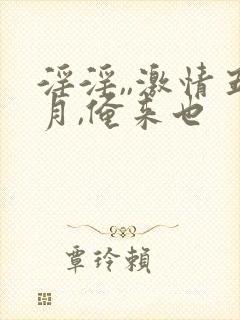 淫淫,,激情五
月,俺来也
覃玲賴